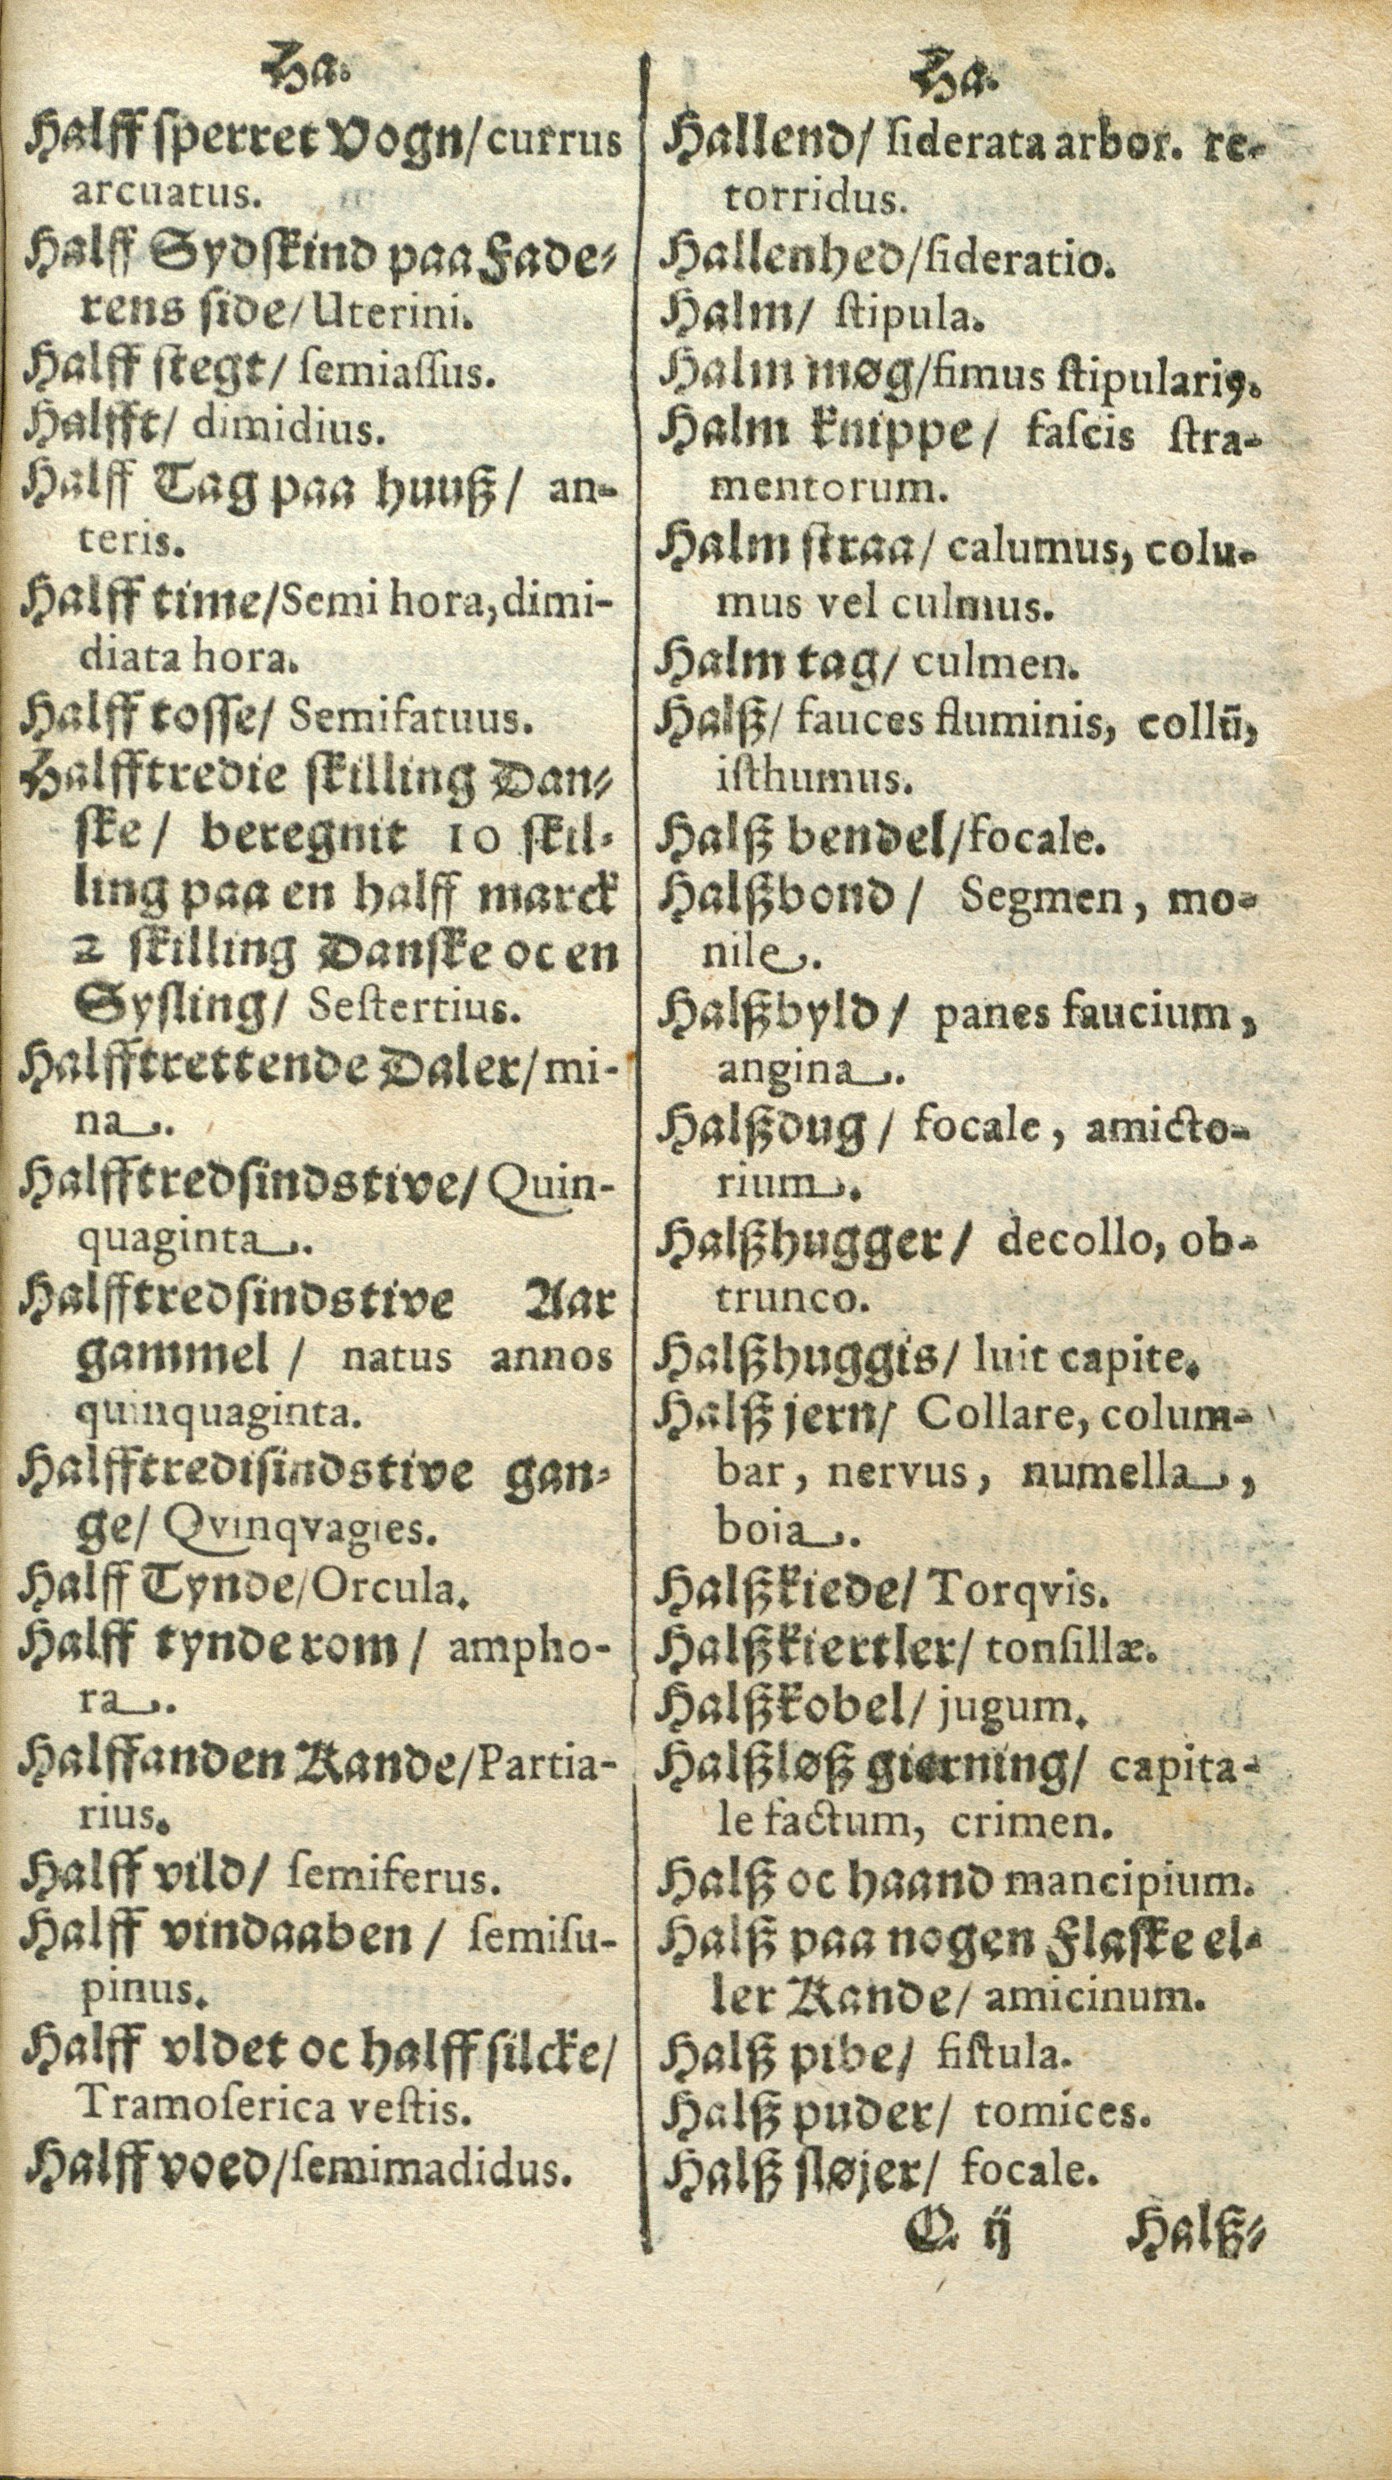 Ha.
Halff sperret Vogn/ currus
arcuatus.
Halff Sydskind paa Fade-
rens side/ Uterini.
Halff stegt/ semiassus.
Halfft/ dimidius.
Halff Tag paa huuß/ an-
teris.
Halff time/ Semi hora, dimi-
diata hora.
Halff tosse/ Semifatuus.
Halfftredie skilling Dan-
ske/ beregnit 10 skil-
ling paa en halff marck
2 skilling Danske oc en
Sysling/ Sestertius.
Halfftrettende Daler/ mi-
na.
Halfftredsindstive/ Quin-
quaginta.
Halfftredsindstive Aar
gammel/ natus annos
quinquaginta.
Halfftredisindstive gan-
ge/ Qvinqvagies.
Halff Tynde/ Orcula.
Halff tynde rom/ ampho-
ra.
Halffanden Kande/ Partia-
rius.
Halff vild/ semiferus.
Halff vindaaben/ semisu-
pinus.
Halff vldet oc halff silcke/
Tramoserica vestis.
Halff voed/ semimadidus.
Ha.
Hallend/ siderata arbor. re-
torridus.
Hallenhed/ sideratio.
Halm/ stipula.
Halm møg/ fimus stipulariꝰ.
Halm knippe/ fascis stra-
mentorum.
Halm straa/ calumus, colu-
mus vel culmus.
Halm tag/ culmen.
Halß/ fauces fluminis, collū,
isthumus.
Halß bendel/ focale.
Halßbond/ Segmen, mo-
nile.
Halßbyld/ panes faucium,
angina.
Halßdug/ focale, amicto-
rium.
Halßhugger/ decollo, ob-
trunco.
Halßhuggis/ luit capite.
Halß jern/ Collare, colum-
bar, nervus, numella,
boia.
Halßkiede/ Torqvis.
Halßkiertler/ tonsillæ.
Halßkobel/ jugum.
Halßløß gierning/ capita-
le factum, crimen.
Halß oc haand mancipium.
Halß paa nogen Flaske el-
ler Kande/ amicinum.
Halß pibe/ fistula.
Halß puder/ tomices.
Halß sløjer/ focale.
Q ij Halß-